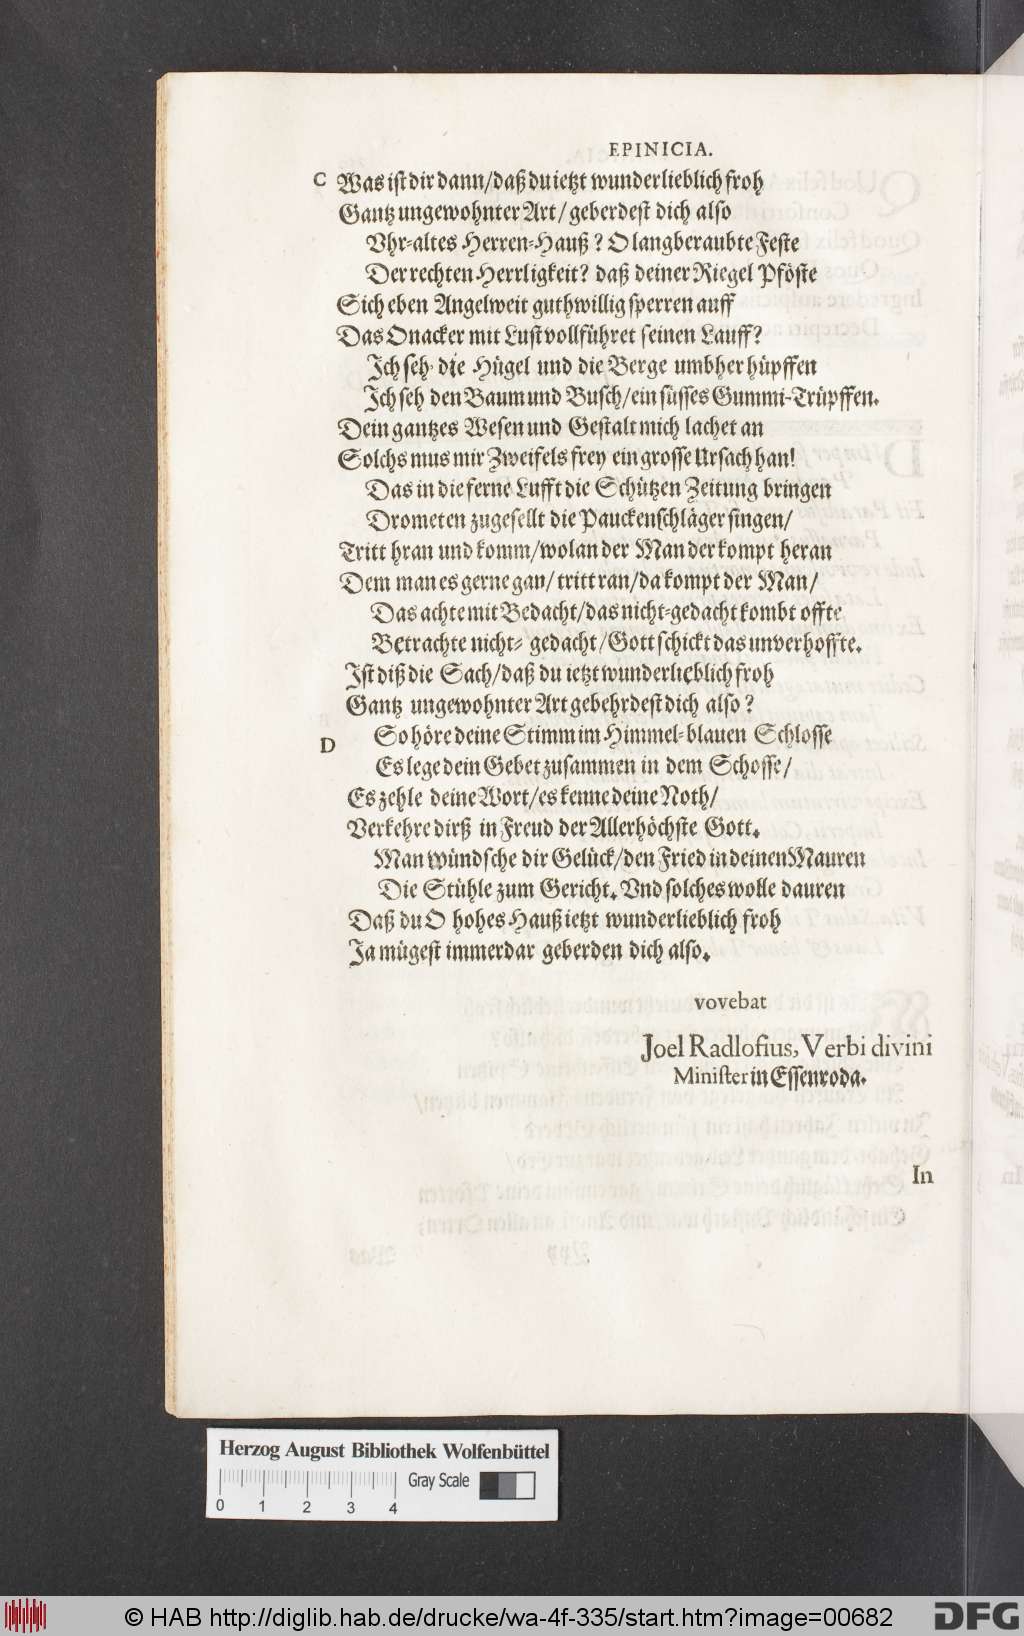 EPINICIA.
C Was ist dir dann/daß du ietzt wunderlieblich froh
Gantz ungewohnter Art/geberdest dich also
Vhr-altes Herren-Hauß? O langberaubte Feste
Der rechten Herrligkeit? daß deiner Riegel Pföste
Sich eben Angelweit guthwillig sperren auff
Das Onacker mit Lust vollführet seinen Lauff?
Ich seh die Hügel und die Berge umbher hüpffen
Ich seh den Baum und Busch/ein süsses Gummi-Trüpffen.
Dein gantzes Wesen und Gestalt mich lachet an
Solchs mus mir Zweifels frey ein grosse Ursach han!
Das in die ferne Lufft die Schützen Zeitung bringen
Drometen zugesellt die Pauckenschläger singen/
Tritt hran und komm/wolan der Man der kompt heran
Dem man es gerne gan/tritt ran/da kompt der Man/
Das achte mit Bedacht/das nicht-gedacht kombt offte
Betrachte nicht-gedacht/Gott schickt das unverhoffte.
Ist diß die Sach/daß du ietzt wunderlieblich froh
Gantz ungewohnter Art gebehrdest dich also?
D So höre deine Stimm im Himmel-blauen Schlosse
Es lege dein Gebet zusammen in dem Schosse/
Es zehle deine Wort/es kenne deine Noth/
Verkehre dirß in Freud der Allerhöchste Gott.
Man wündsche dir Gelück/den Fried in deinen Mauren
Die Stühle zum Gericht. Vnd solches wolle dauren
Daß du O hohes Hauß ietzt wunderlieblich froh
Ja mügest immerdar geberden dich also.
vovebat
Joel Radlofius, Verbi divini
Minister in Essenroda.
In
Herzog August Bibliothek Wolfenbüttel
Gray Scale
0 1 2 3 4
© HAB http://diglib.hab.de/drucke/wa-4f-335/start.htm?image=00682
DFG